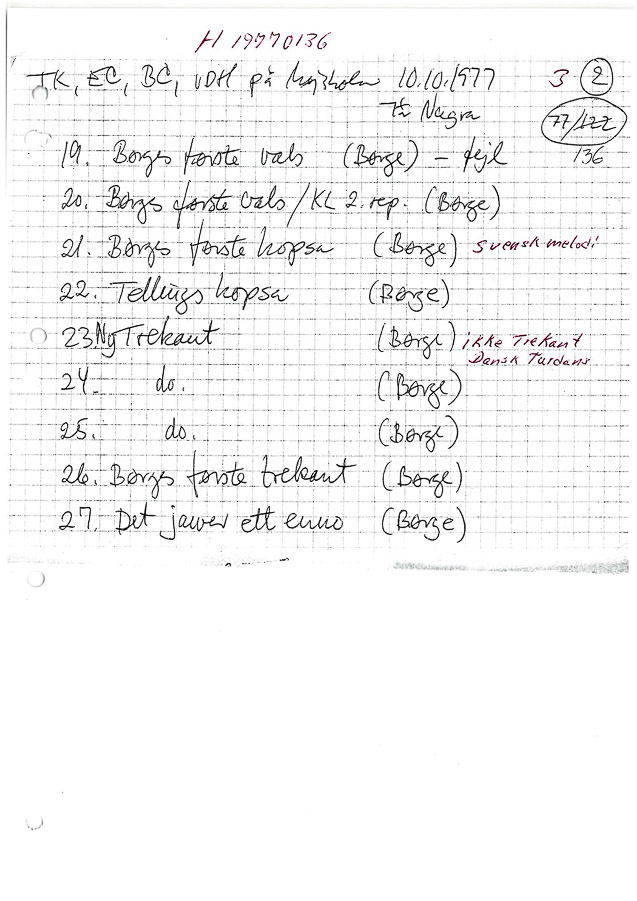 H 19770136
TK, EC, BC, vDH på højskolen 10.10.1977 3 2
Nagra 77/122
136
19. Børges første vals (Børge) - fejl
20. Børges første vals / KL 2. rep. (Børge)
21. Børges første hopsa (Børge) svensk melodi
22. Tellings hopsa (Børge)
23. Ny Trekant (Børge) ikke Trekant
Dansk Turdans
24. do. (Børge)
25. do. (Børge)
26. Børges første trekant (Børge)
27. Det jawer ett enno (Børge)